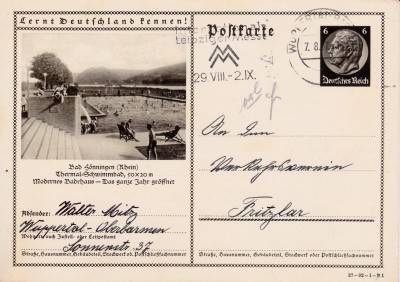 Lernt Deutschland kennen!
Postkarte
Leipziger Messe
29 VIII.-2.IX.
7. 8.
6 6
Deutsches Reich
Bad Hönningen (Rhein)
Thermal-Schwimmbad, 50×20 m
Modernes Badehaus — Das ganze Jahr geöffnet
Absender: Walter
Wuppertal-Oberbarmen
Wohnort, auch Zustell- oder Leitpostamt
Sonnenstr. 37
Straße, Hausnummer, Gebäudeteil, Stockwerk od. Postschließfachnummer
An den
Verkehrsverein
Fritzlar
Straße, Hausnummer, Gebäudeteil, Stockwerk oder Postschließfachnummer